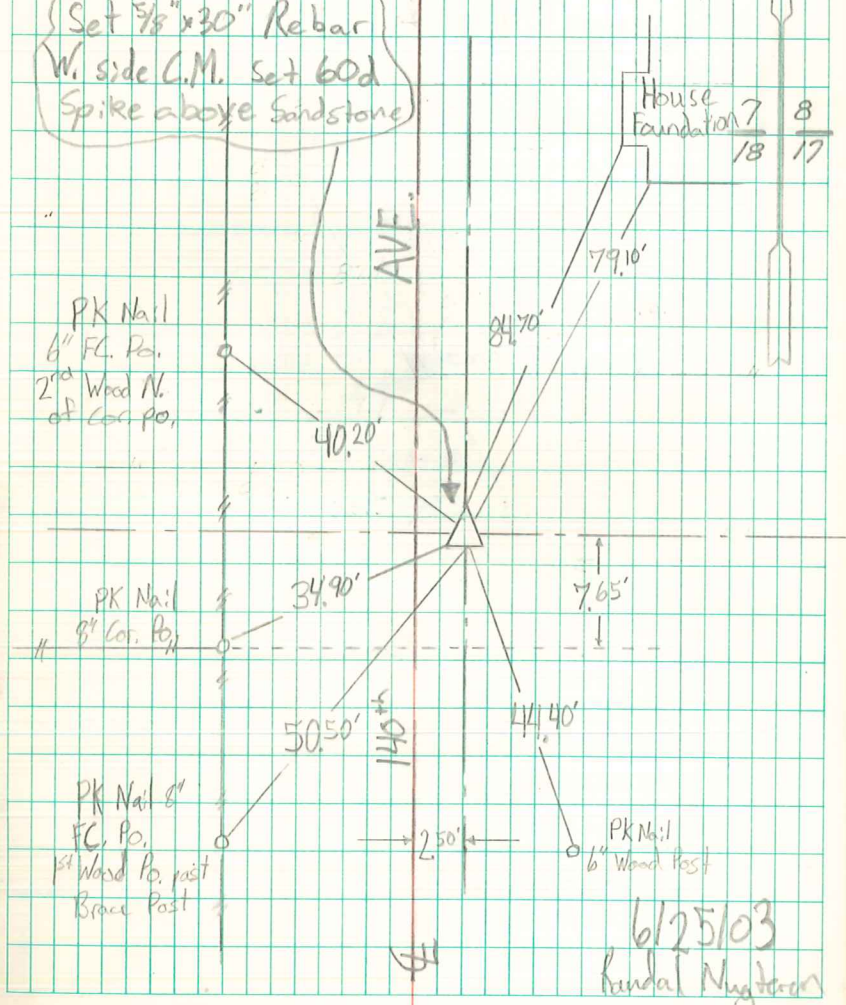 Set 5/8"x30" Rebar
W. side C.M. Set 60d
Spike above Sandstone
House
Foundation
7 8
18 17
AVE.
79.10'
84.70'
PK Nail
6" FC. Po.
2nd Wood N.
of Cor. Po.
40.20'
34.90'
7.65'
PK Nail
8" Cor. Po.
50.50'
140th
44.40'
PK Nail 8"
FC. Po.
1st Wood Po. past
Brace Post
2.50'
PK Nail
6" Wood Post
6/25/03
Randal Nugteren